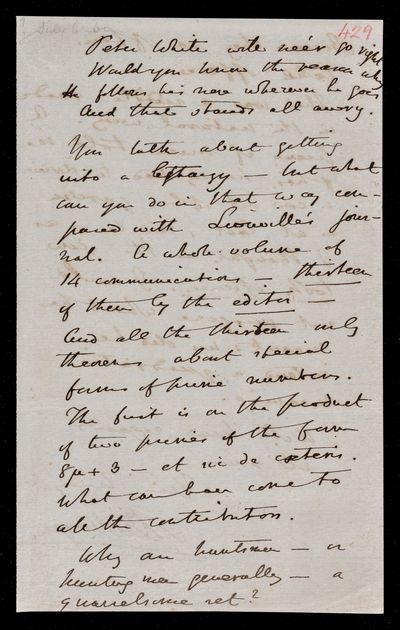 429
Peter White will ne'er go right
Would you know the reason why
He follows his nose wherever he goes
And that stands all awry.
You talk about getting
into a lethargy — but what
can you do in that way com-
pared with Liouville's jour-
nal. A whole volume of
14 communications — thirteen
of them by the editor —
And all the thirteen only
theorems about special
forms of prime numbers.
The first is on the product
of two primes of the form
8μ + 3 — et sic de cæteris.
What can have come to
all the contributors.
Why are huntsmen — or
hunting men generally — a
quarrelsome set?